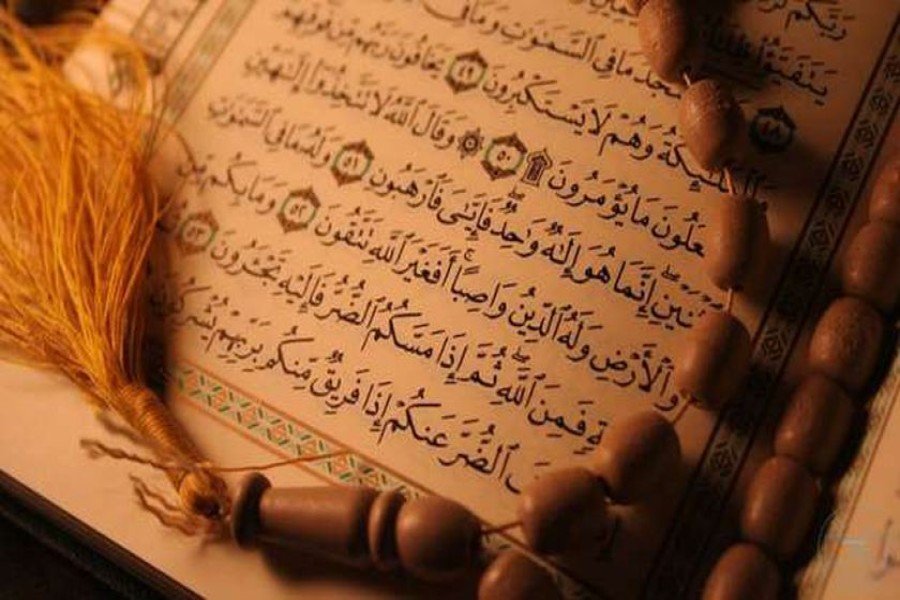 رَبَّكُمْ
يَتَفَيَّؤُا۟
٤٨ يَسْجُدُ مَا فِى ٱلسَّمَٰوَٰتِ وَمَا فِى
وَٱلْمَلَٰٓئِكَةُ وَهُمْ لَا يَسْتَكْبِرُونَ ٤٩ يَخَافُونَ رَبَّهُم مِّن فَوْقِهِمْ
وَيَفْعَلُونَ مَا يُؤْمَرُونَ ۩ ٥٠ ۞ وَقَالَ ٱللَّهُ لَا تَتَّخِذُوٓا۟ إِلَٰهَيْنِ
ٱثْنَيْنِ ۖ إِنَّمَا هُوَ إِلَٰهٌ وَٰحِدٌ ۖ فَإِيَّٰىَ فَٱرْهَبُونِ ٥١ وَلَهُۥ مَا فِى ٱلسَّمَٰوَٰتِ
وَٱلْأَرْضِ وَلَهُ ٱلدِّينُ وَاصِبًا ۚ أَفَغَيْرَ ٱللَّهِ تَتَّقُونَ ٥٢ وَمَا بِكُم مِّن
فَمِنَ ٱللَّهِ ۖ ثُمَّ إِذَا مَسَّكُمُ ٱلضُّرُّ فَإِلَيْهِ تَجْـَٔرُونَ ٥٣
ٱلضُّرَّ عَنكُمْ إِذَا فَرِيقٌ مِّنكُم بِرَبِّهِمْ يُشْرِكُونَ